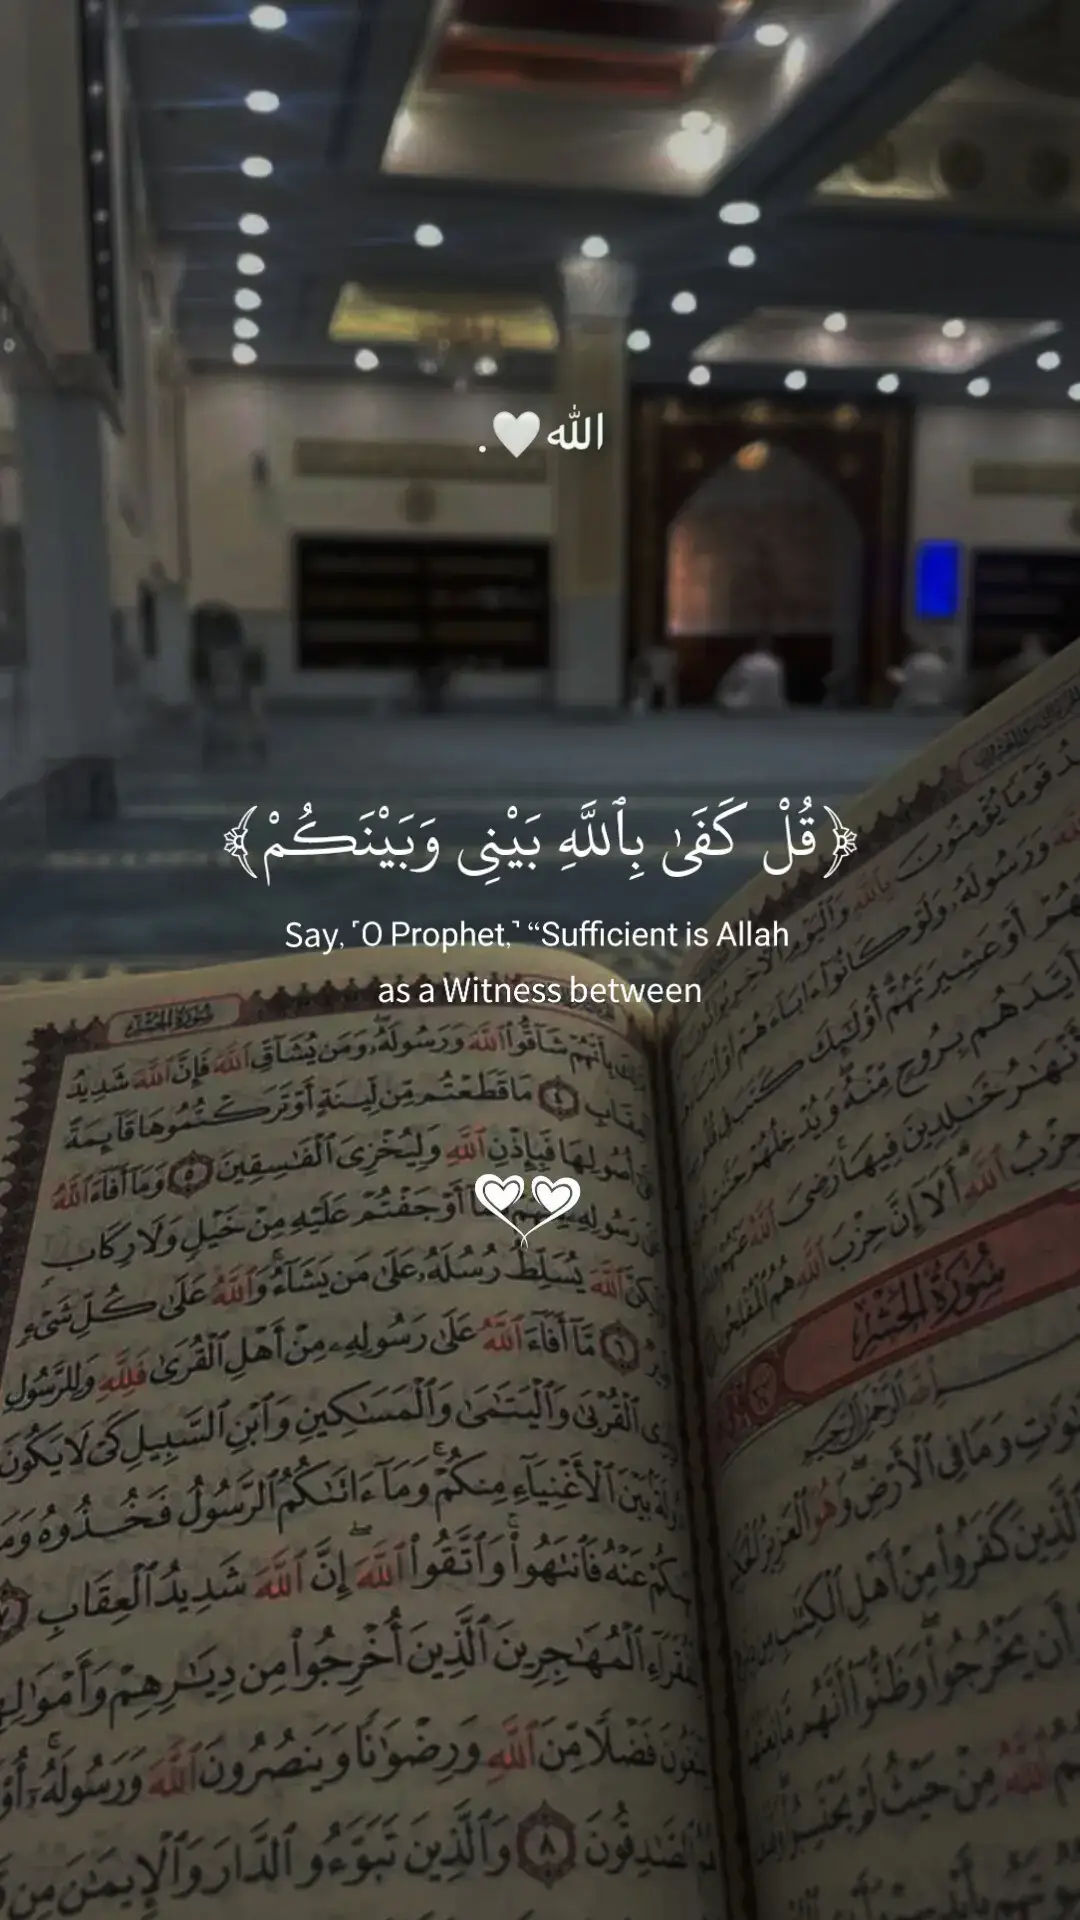 الله🤍.
﴿قُلْ كَفَىٰ بِٱللَّهِ بَيْنِى وَبَيْنَكُمْ﴾
Say, ˹O Prophet,˺ “Sufficient is Allah
as a Witness between
قَوْمًا يُؤْمِنُونَ بِٱللَّهِ وَٱلْيَوْمِ ٱلْـَٔاخِرِ
وَرَسُولَهُۥ وَلَوْ كَانُوٓا۟ ءَابَآءَهُمْ أَوْ
أَوْ عَشِيرَتَهُمْ أُو۟لَٰٓئِكَ كَتَبَ فِى
وَأَيَّدَهُم بِرُوحٍ مِّنْهُ وَيُدْخِلُهُمْ
خَٰلِدِينَ فِيهَا رَضِىَ ٱللَّهُ عَنْهُمْ
حِزْبُ ٱللَّهِ أَلَآ إِنَّ حِزْبَ ٱللَّهِ هُمُ ٱلْمُفْلِحُونَ
سُورَةُ الحَشْرِ
ٱللَّهِ ٱلرَّحْمَٰنِ ٱلرَّحِيمِ
وَمَا فِى ٱلْأَرْضِ وَهُوَ ٱلْعَزِيزُ
ٱلَّذِينَ كَفَرُوا۟ مِنْ أَهْلِ ٱلْكِتَٰبِ مِن
أَن يَخْرُجُوا۟ وَظَنُّوٓا۟ أَنَّهُم مَّانِعَتُهُمْ
ٱللَّهُ مِنْ حَيْثُ لَمْ يَحْتَسِبُوا۟
سُورَةُ الحَشْرِ
بِأَنَّهُمْ شَآقُّوا۟ ٱللَّهَ وَرَسُولَهُۥ وَمَن يُشَآقِّ ٱللَّهَ فَإِنَّ ٱللَّهَ شَدِيدُ
ٱلْعِقَابِ ٤ مَا قَطَعْتُم مِّن لِّينَةٍ أَوْ تَرَكْتُمُوهَا قَآئِمَةً
أُصُولِهَا فَبِإِذْنِ ٱللَّهِ وَلِيُخْزِىَ ٱلْفَٰسِقِينَ ٥ وَمَآ أَفَآءَ ٱللَّهُ
رَسُولِهِۦ أَوْجَفْتُمْ عَلَيْهِ مِنْ خَيْلٍ وَلَا رِكَابٍ
ٱللَّهَ يُسَلِّطُ رُسُلَهُۥ عَلَىٰ مَن يَشَآءُ وَٱللَّهُ عَلَىٰ كُلِّ شَىْءٍ
٦ مَّآ أَفَآءَ ٱللَّهُ عَلَىٰ رَسُولِهِۦ مِنْ أَهْلِ ٱلْقُرَىٰ فَلِلَّهِ وَلِلرَّسُولِ
ٱلْقُرْبَىٰ وَٱلْيَتَٰمَىٰ وَٱلْمَسَٰكِينِ وَٱبْنِ ٱلسَّبِيلِ كَىْ لَا يَكُونَ
دُولَةًۢ بَيْنَ ٱلْأَغْنِيَآءِ مِنكُمْ وَمَآ ءَاتَىٰكُمُ ٱلرَّسُولُ فَخُذُوهُ وَمَا
عَنْهُ فَٱنتَهُوا۟ وَٱتَّقُوا۟ ٱللَّهَ إِنَّ ٱللَّهَ شَدِيدُ ٱلْعِقَابِ ٧
ٱلْمُهَٰجِرِينَ ٱلَّذِينَ أُخْرِجُوا۟ مِن دِيَٰرِهِمْ وَأَمْوَٰلِهِمْ
يَبْتَغُونَ فَضْلًا مِّنَ ٱللَّهِ وَرِضْوَٰنًا وَيَنصُرُونَ ٱللَّهَ وَرَسُولَهُۥٓ
ٱلصَّٰدِقُونَ ٨ وَٱلَّذِينَ تَبَوَّءُو ٱلدَّارَ وَٱلْإِيمَٰنَ مِن